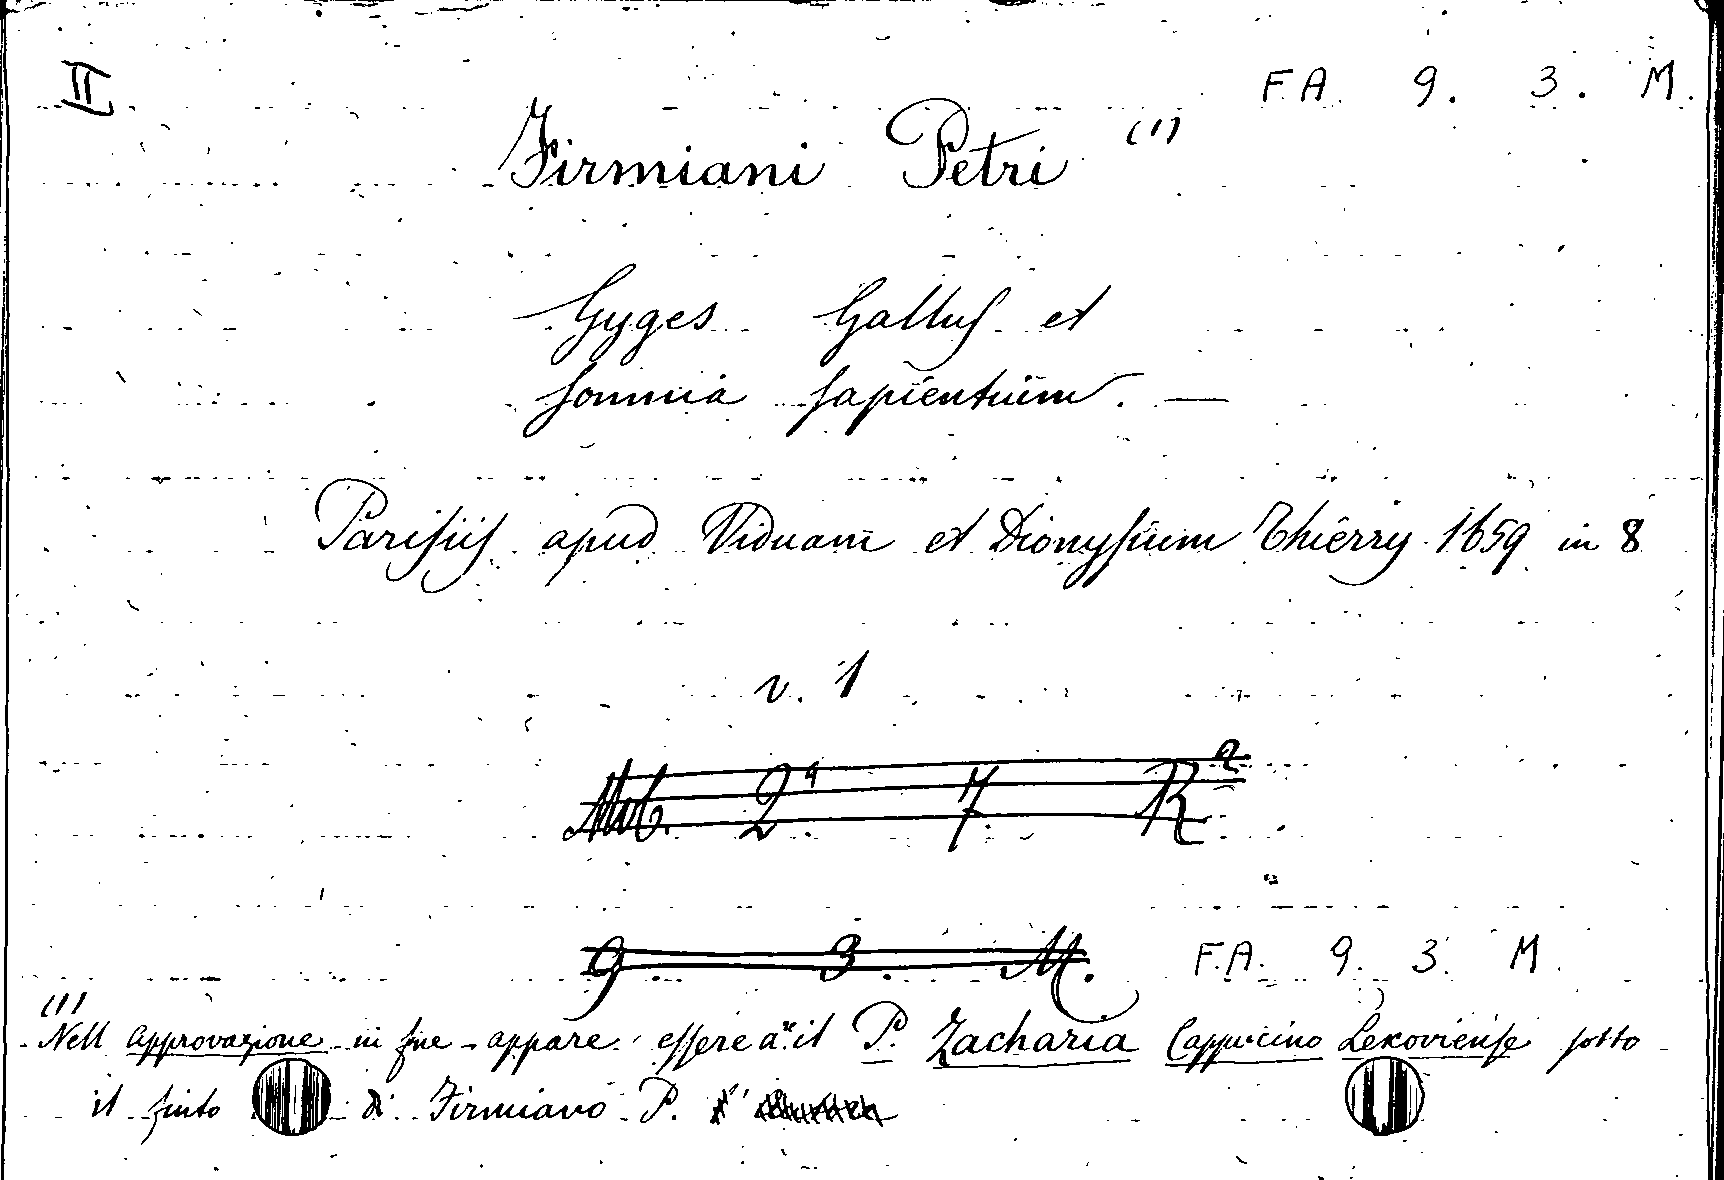 II
F.A. 9. 3. M.
Firmiani Petri (1)
Gyges Gallus et
somnia sapientium. —
Parisiis apud Viduam et Dionysium Thierry 1659 in 8
v. 1
Mb. 2a 7. R2
9 3. M. F.A. 9. 3. M.
(1) Nell approvazione in fne appare essere il P. Zacharia Cappucino Lexoviense sotto
il finto di Firmiano P.